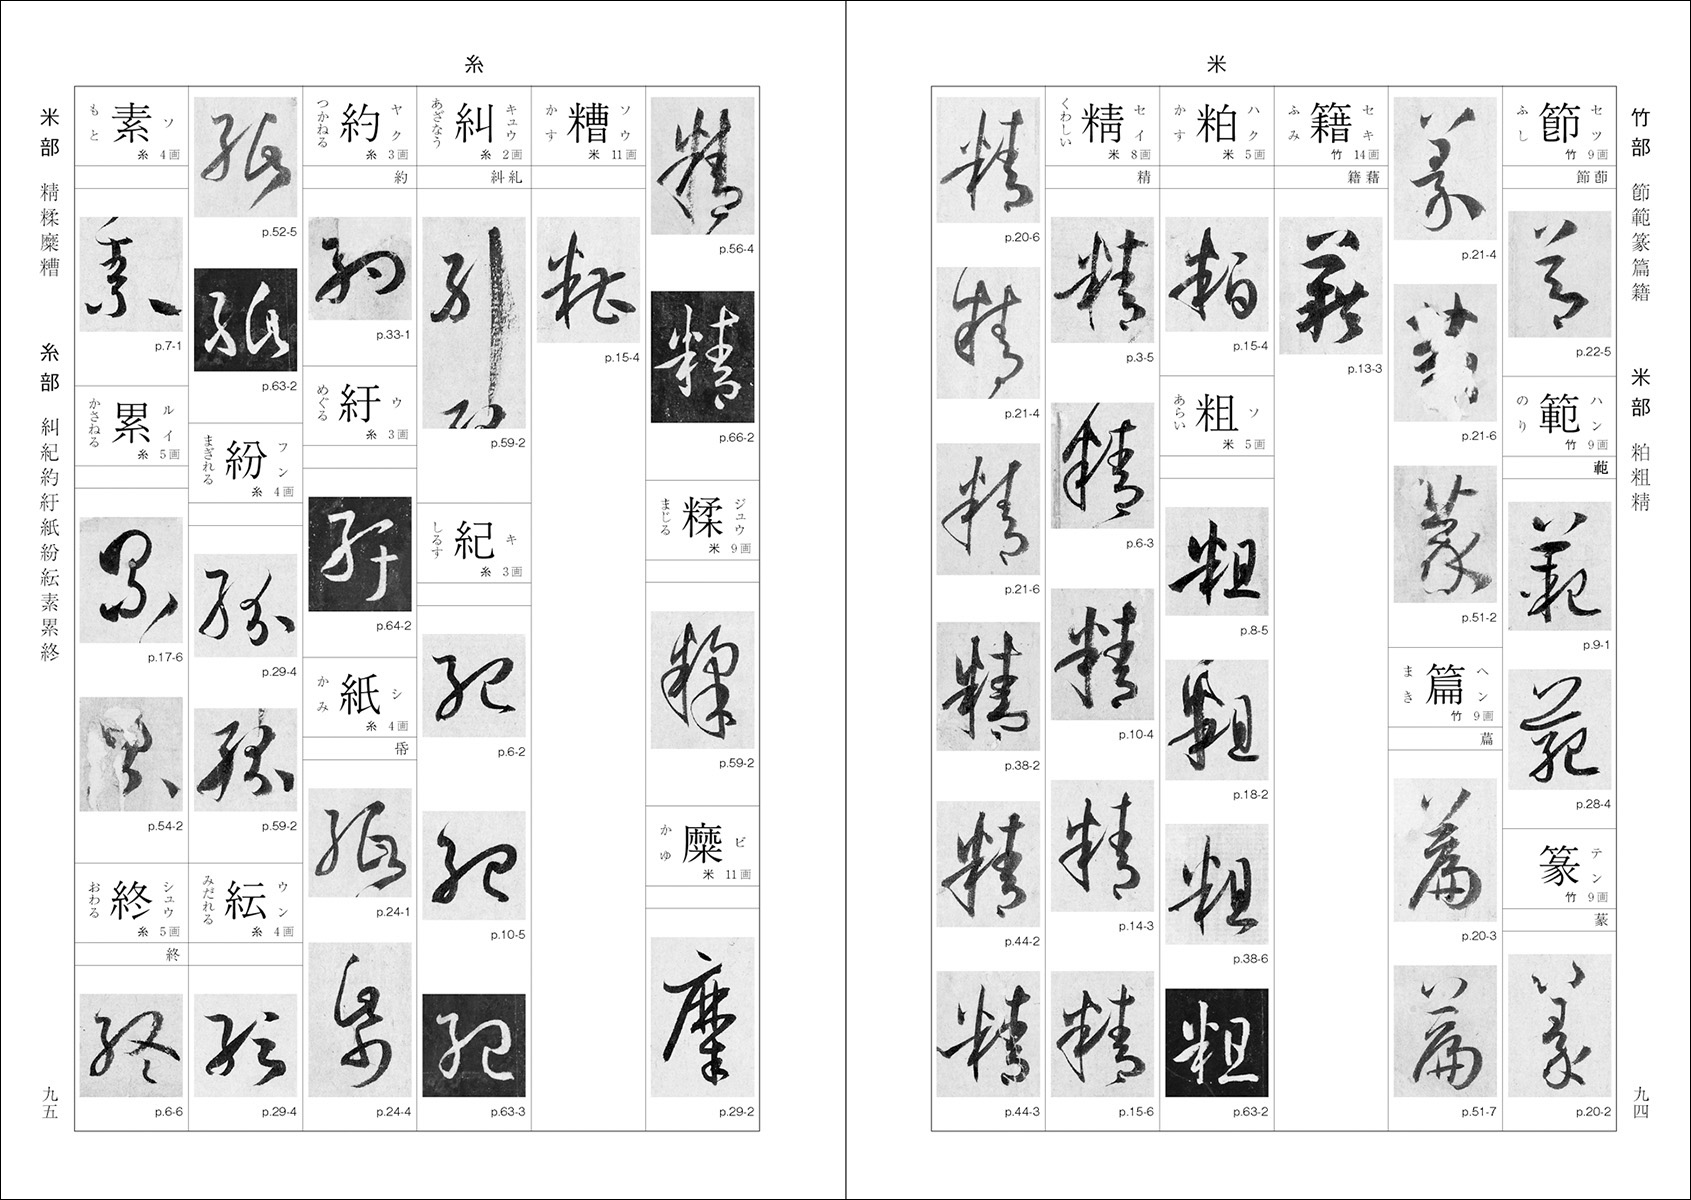 竹部 節範篆篇籍 米部 粕粗精
九四
米
節 セツ ふし 竹 9画
節 莭
p.22-5
範 ハン のり 竹 9画
p.9-1
p.28-4
篆 テン 竹 9画
蒃
p.20-2
p.21-4
p.21-6
p.51-2
篇 ヘン まき 竹 9画
萹
p.20-3
p.51-7
籍 セキ ふみ 竹 14画
籍 藉
p.13-3
粕 ハク かす 米 5画
p.15-4
粗 ソ あらい 米 5画
p.8-5
p.18-2
p.38-6
p.63-2
精 セイ くわしい 米 8画
精
p.3-5
p.6-3
p.10-4
p.14-3
p.15-6
p.20-6
p.21-4
p.21-6
p.38-2
p.44-2
p.44-3
糸
p.56-4
p.66-2
糅 ジュウ まじる 米 9画
p.59-2
糜 ビ かゆ 米 11画
p.29-2
糟 ソウ かす 米 11画
p.15-4
糾 キュウ あざなう 糸 2画
糾 糺
p.59-2
紀 キ しるす 糸 3画
p.6-2
p.10-5
p.63-3
約 ヤク つかねる 糸 3画
約
p.33-1
紆 ウ めぐる 糸 3画
p.64-2
紙 シ かみ 糸 4画
帋
p.24-1
p.24-4
p.52-5
p.63-2
紛 フン まぎれる 糸 4画
p.29-4
p.59-2
紜 ウン みだれる 糸 4画
p.29-4
素 ソ もと 糸 4画
p.7-1
累 ルイ かさねる 糸 5画
p.17-6
p.54-2
終 シュウ おわる 糸 5画
終
p.6-6
米部 精糅糜糟 糸部 糾紀約紆紙紛紜素累終
九五